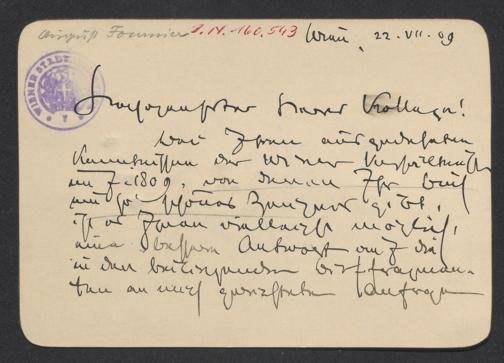 August Fournier I.N. 160.543 Wien, 22. VII. 09
WIENER STADT
Hochgeehrter Herr Kollege!
Bei Ihren ausgedehnten
Kenntnissen der Wiener Verhältnisse
im J. 1809, von denen Ihr Buch
ein so schönes Zeugnis gibt,
ist es Ihnen vielleicht möglich,
eine bessere Antwort auf die
in den beiliegenden Brieffragmen-
ten an mich gerichteten Anfragen